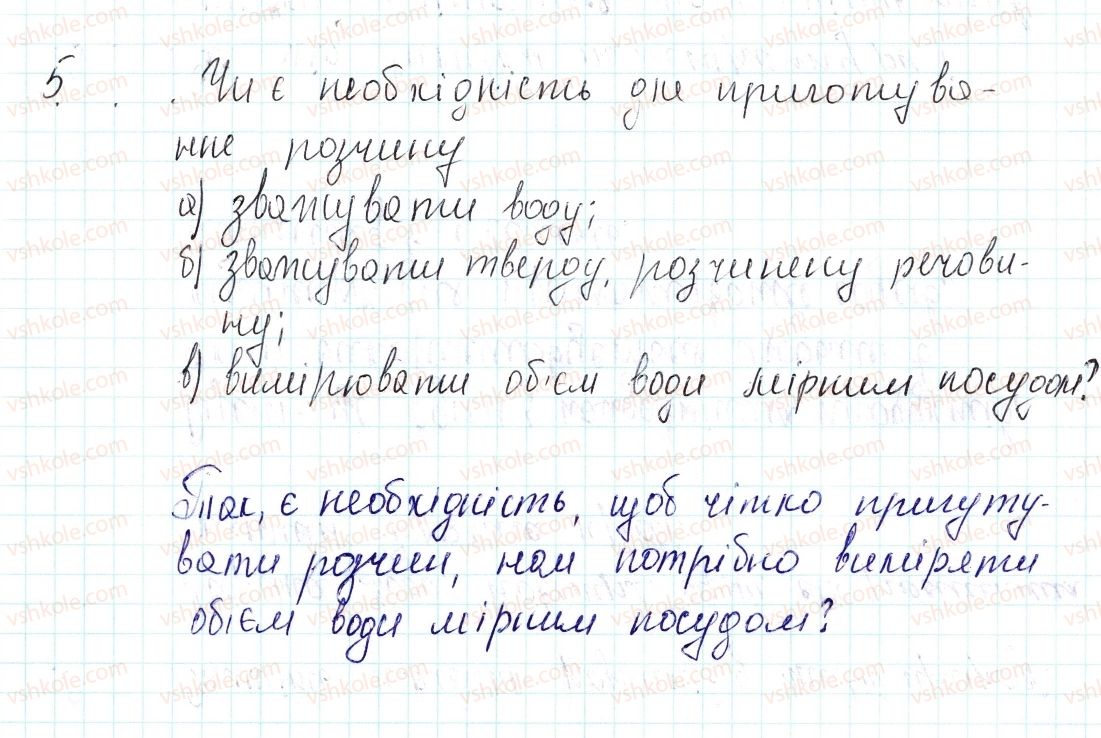 5. Чи є необхідність для приготува-
ння розчину
а) зважувати воду;
б) зважувати тверду, розчинену речови-
ну;
в) вимірювати об'єм води мірним посудом?
Так, є необхідність, щоб чітко пригуту-
вати розчин, нам потрібно виміряти
обієм води мірним посудом?